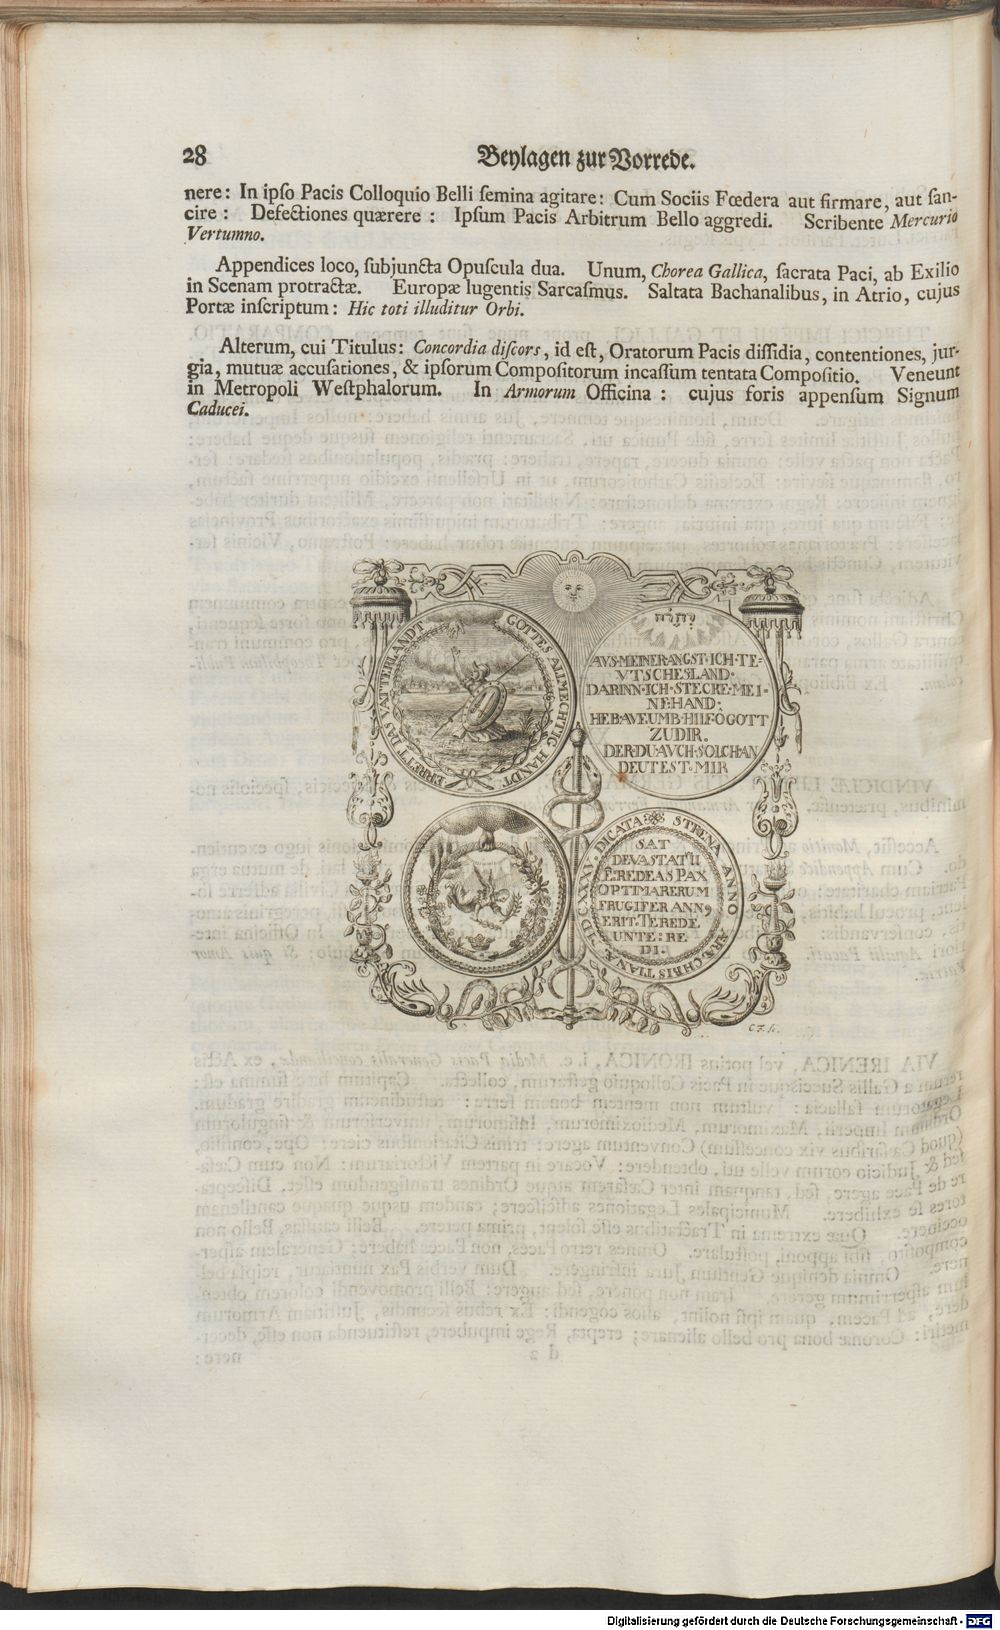 28 Beylagen zur Vorrede.
nere: In ipſo Pacis Colloquio Belli ſemina agitare: Cum Sociis Fœdera aut firmare, aut ſan-
cire: Defectiones quærere: Ipſum Pacis Arbitrum Bello aggredi. Scribente Mercurio
Vertumno.
Appendices loco, ſubjuncta Opuſcula dua. Unum, Chorea Gallica, ſacrata Paci, ab Exilio
in Scenam protractæ. Europæ lugentis Sarcaſmus. Saltata Bachanalibus, in Atrio, cujus
Portæ inſcriptum: Hic toti illuditur Orbi.
Alterum, cui Titulus: Concordia diſcors, id eſt, Oratorum Pacis diſſidia, contentiones, jur-
gia, mutuæ accuſationes, & ipſorum Compoſitorum incaſſum tentata Compoſitio. Veneunt
in Metropoli Weſtphalorum. In Armorum Officina: cujus foris appenſum Signum
Caducei.
GOTTES ALMECHTIG HANDT ERRETT DAS VATTERLANDT
יהוה
AVS·MEINER·ANGST·ICH·TE=
VTSCHES·LAND·
DARINN·ICH·STECKE·MEI-
NE·HAND;
HEB·AVF·UMB·HILF·O·GOTT
ZU·DIR.
DER·DU·AVCH·SOLCH·AN
DEUTEST·MIR
STRENA ANNO ÆRÆ CHRISTIANÆ MDCXXXV. DICATA
SAT
DEVASTATŪ
E·REDEAS PAX
OPTIMA RERUM
FRUGIFER ANN9
ERIT. TE REDE
UNTE: RE
DI.
Digitalisierung gefördert durch die Deutsche Forschungsgemeinschaft - DFG